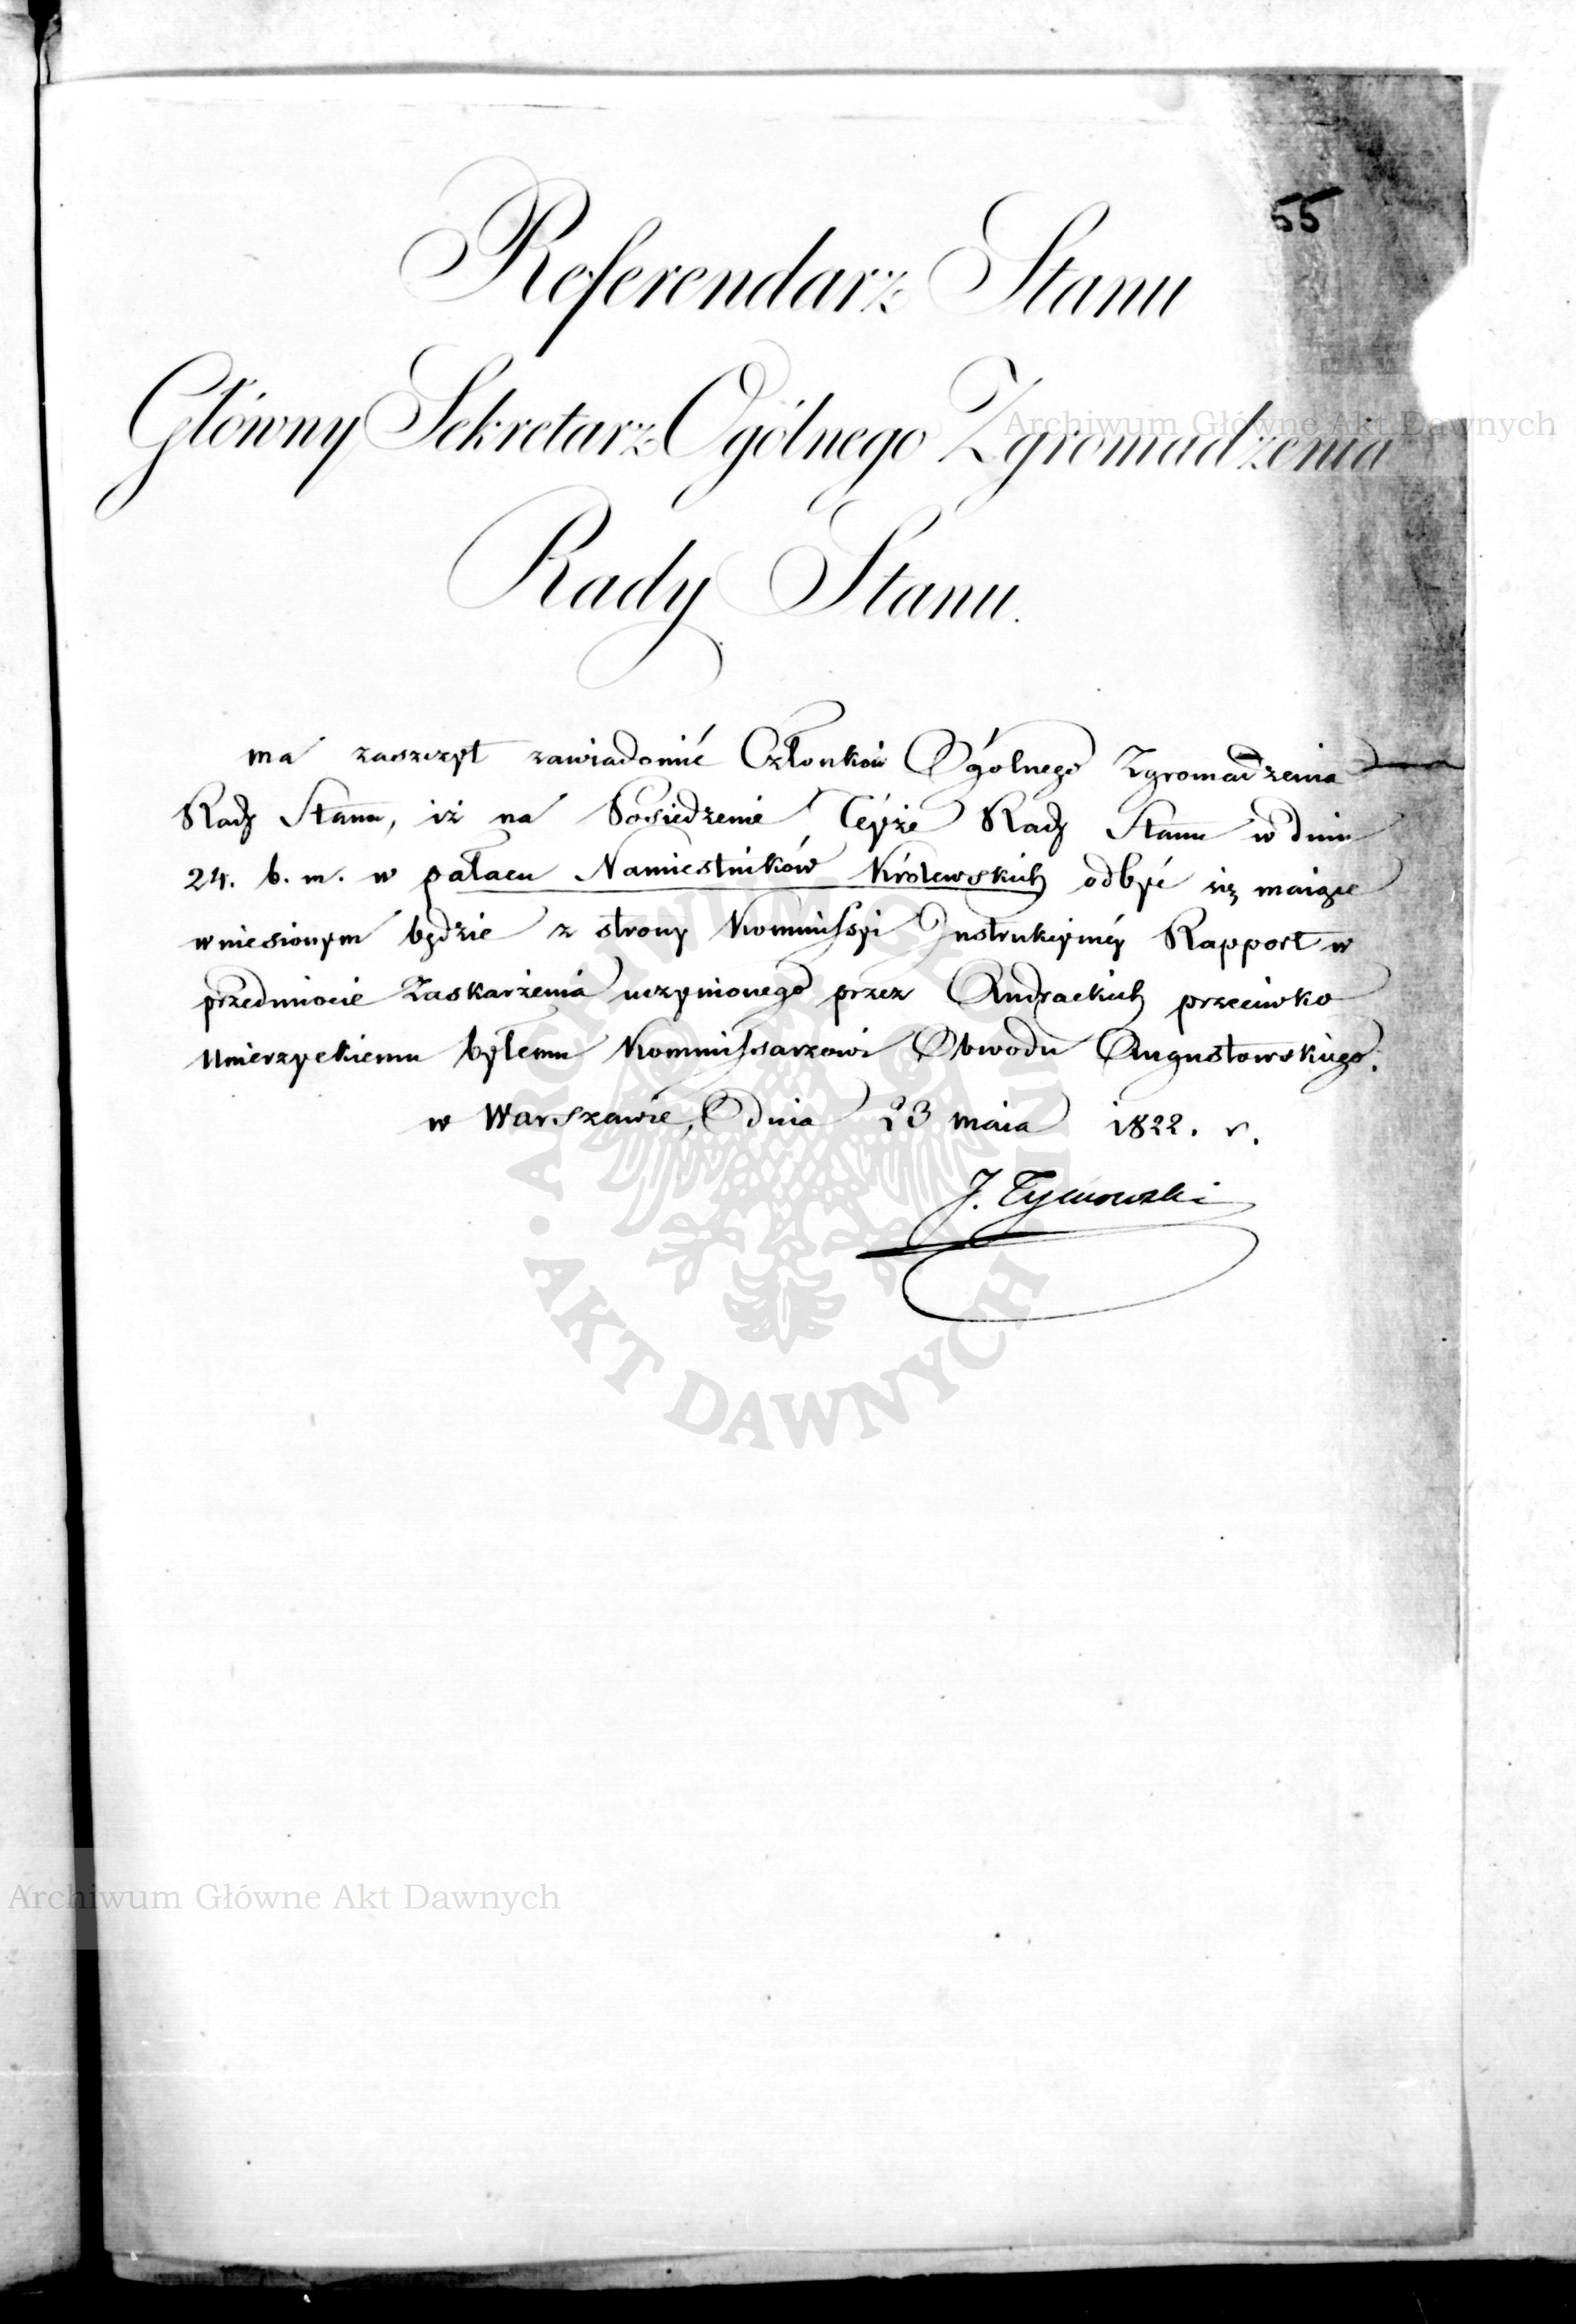 55
Referendarz Stanu
Główny Sekretarz Ogólnego Zgromadzenia
Rady Stanu.
ma zaszczyt zawiadomić Członków Ogólnego Zgromadzenia
Rady Stanu, iż na Posiedzenie Teyże Rady Stanu w dniu
24. b. m. w pałacu Namiestników Królewskich odbyć się maiące
wniesionym będzie z strony Kommissyi Instrukcyiney Rapport w
przedmiocie Zaskarżenia uczynionego przez przeciwko
Umierzyckiemu byłemu Kommissarzowi Obwodu Augustowskiego.
w Warszawie, dnia 23 maia 1822. r.
J. Tymowski
Archiwum Główne Akt Dawnych
ARCHIWUM GŁÓWNE
AKT DAWNYCH
Archiwum Główne Akt Dawnych